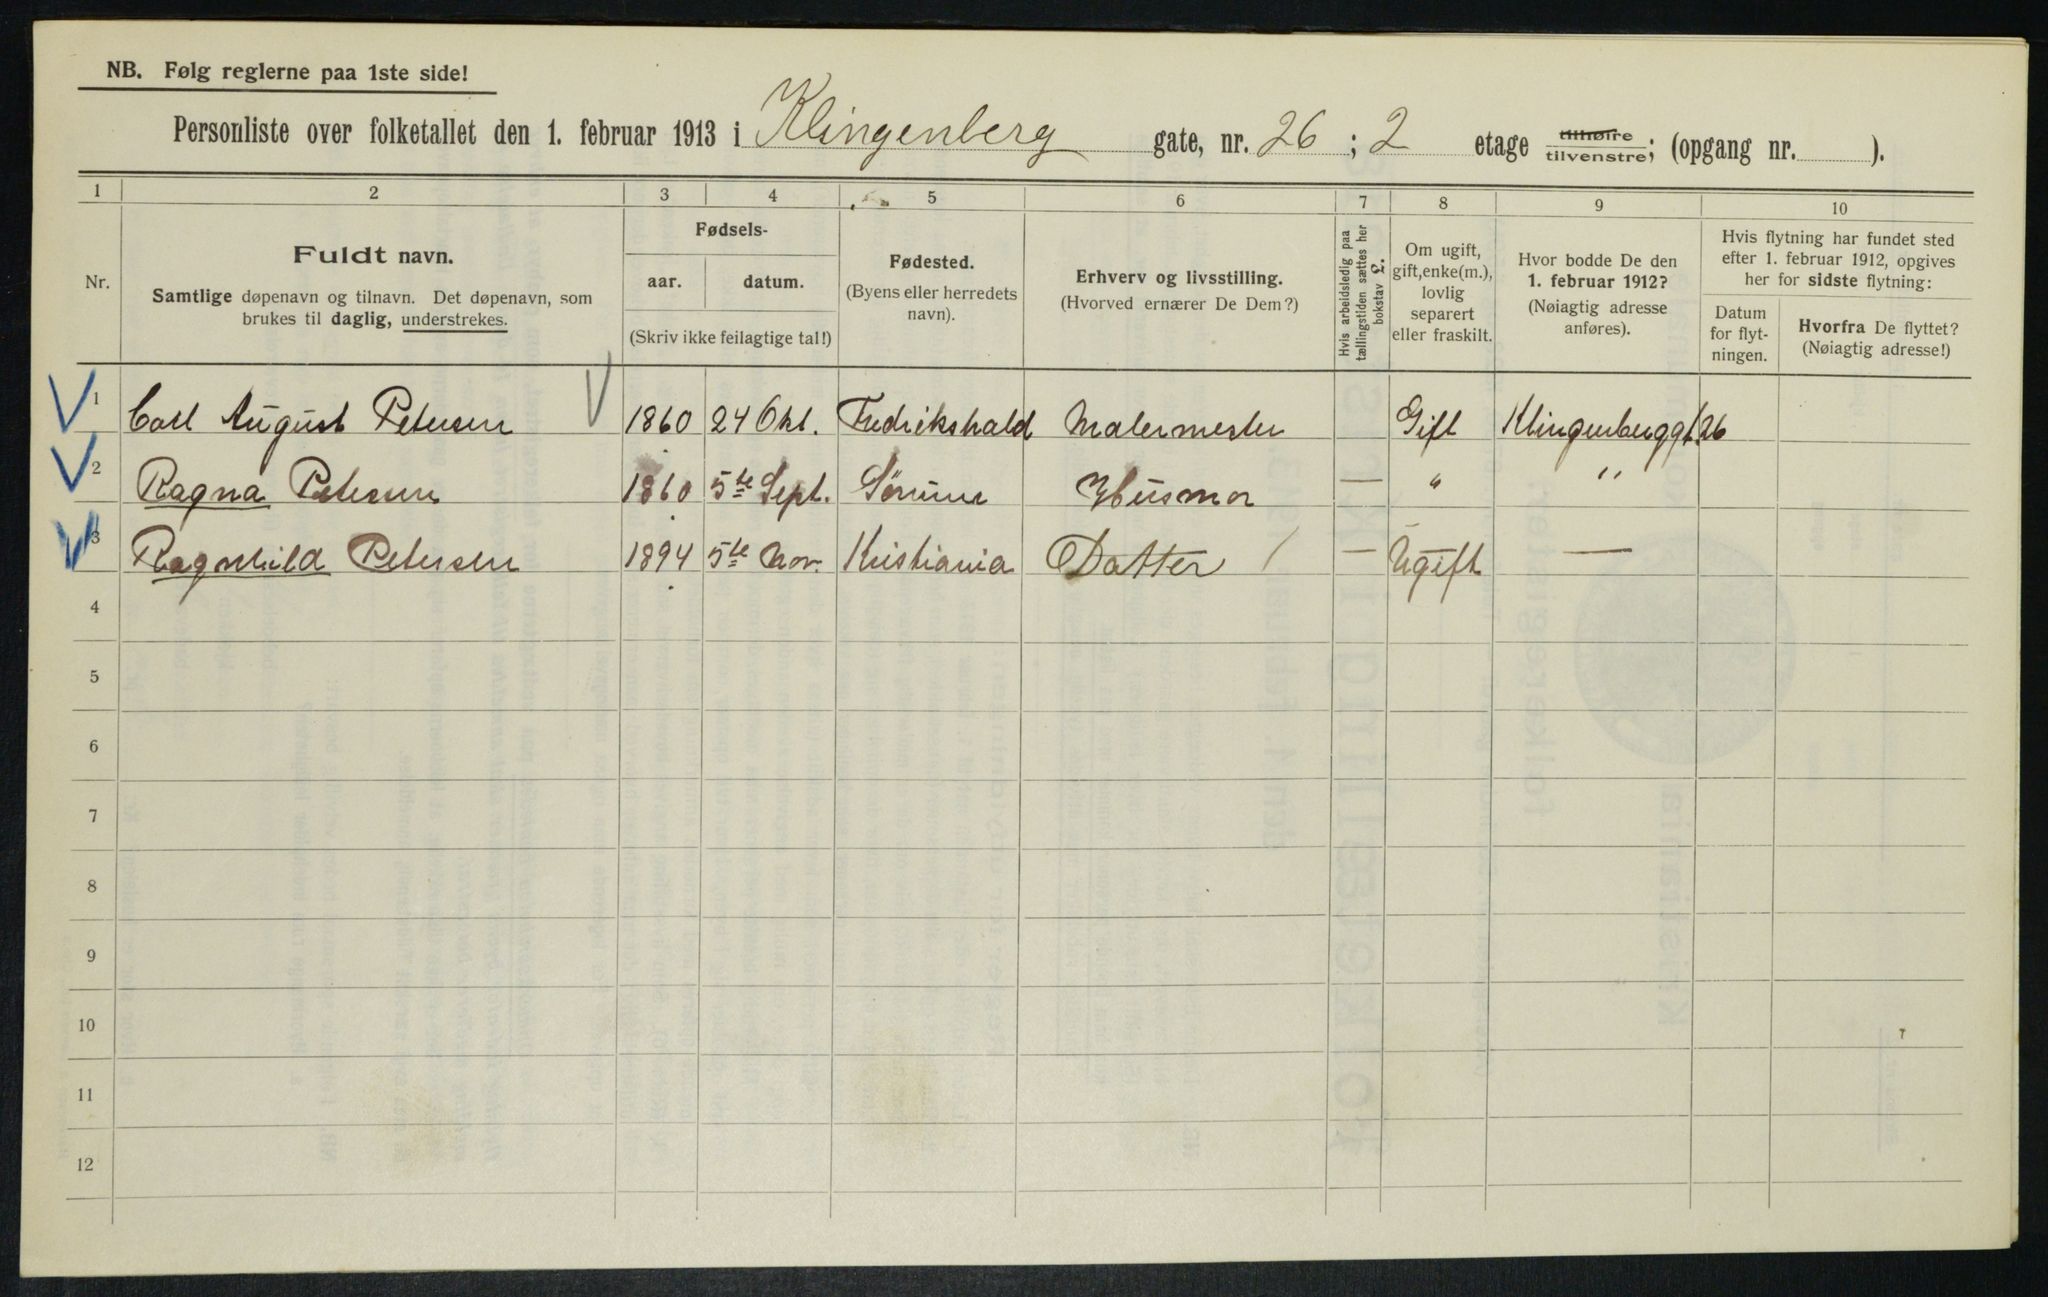 NB. Følg reglerne paa 1ste side!
Personliste over folketallet den 1. februar 1913 i Klingenberg gate, nr. 26 ; 2 etage tilhøire tilvenstre; (opgang nr. ).
1 2 3 4 5 6 7 8 9 10
Nr.
Fuldt navn.
Samtlige døpenavn og tilnavn. Det døpenavn, som
brukes til daglig, understrekes.
Fødsels-
aar. datum.
(Skriv ikke feilagtige tal!)
Fødested.
(Byens eller herredets
navn).
Erhverv og livsstilling.
(Hvorved ernærer De Dem?)
Hvis arbeidsledig paa
tællingstiden sættes her
bokstav L.
Om ugift,
gift, enke(m.),
lovlig
separert
eller fraskilt.
Hvor bodde De den
1. februar 1912?
(Nøiagtig adresse
anføres).
Hvis flytning har fundet sted
efter 1. februar 1912, opgives
her for sidste flytning:
Datum
for flyt-
ningen.
Hvorfra De flyttet?
(Nøiagtig adresse!)
1 Carl August Petersen 1860 24 Okt. Fredrikshald Malermester Gift Klingenberggt. 26
2 Ragna Petersen 1860 5te Sept. Sørum Husmor — " "
3 Ragnhild Petersen 1894 5te Nov. Kristiania Datter / — Ugift —
4
5
6
7
8
9
10
11
12